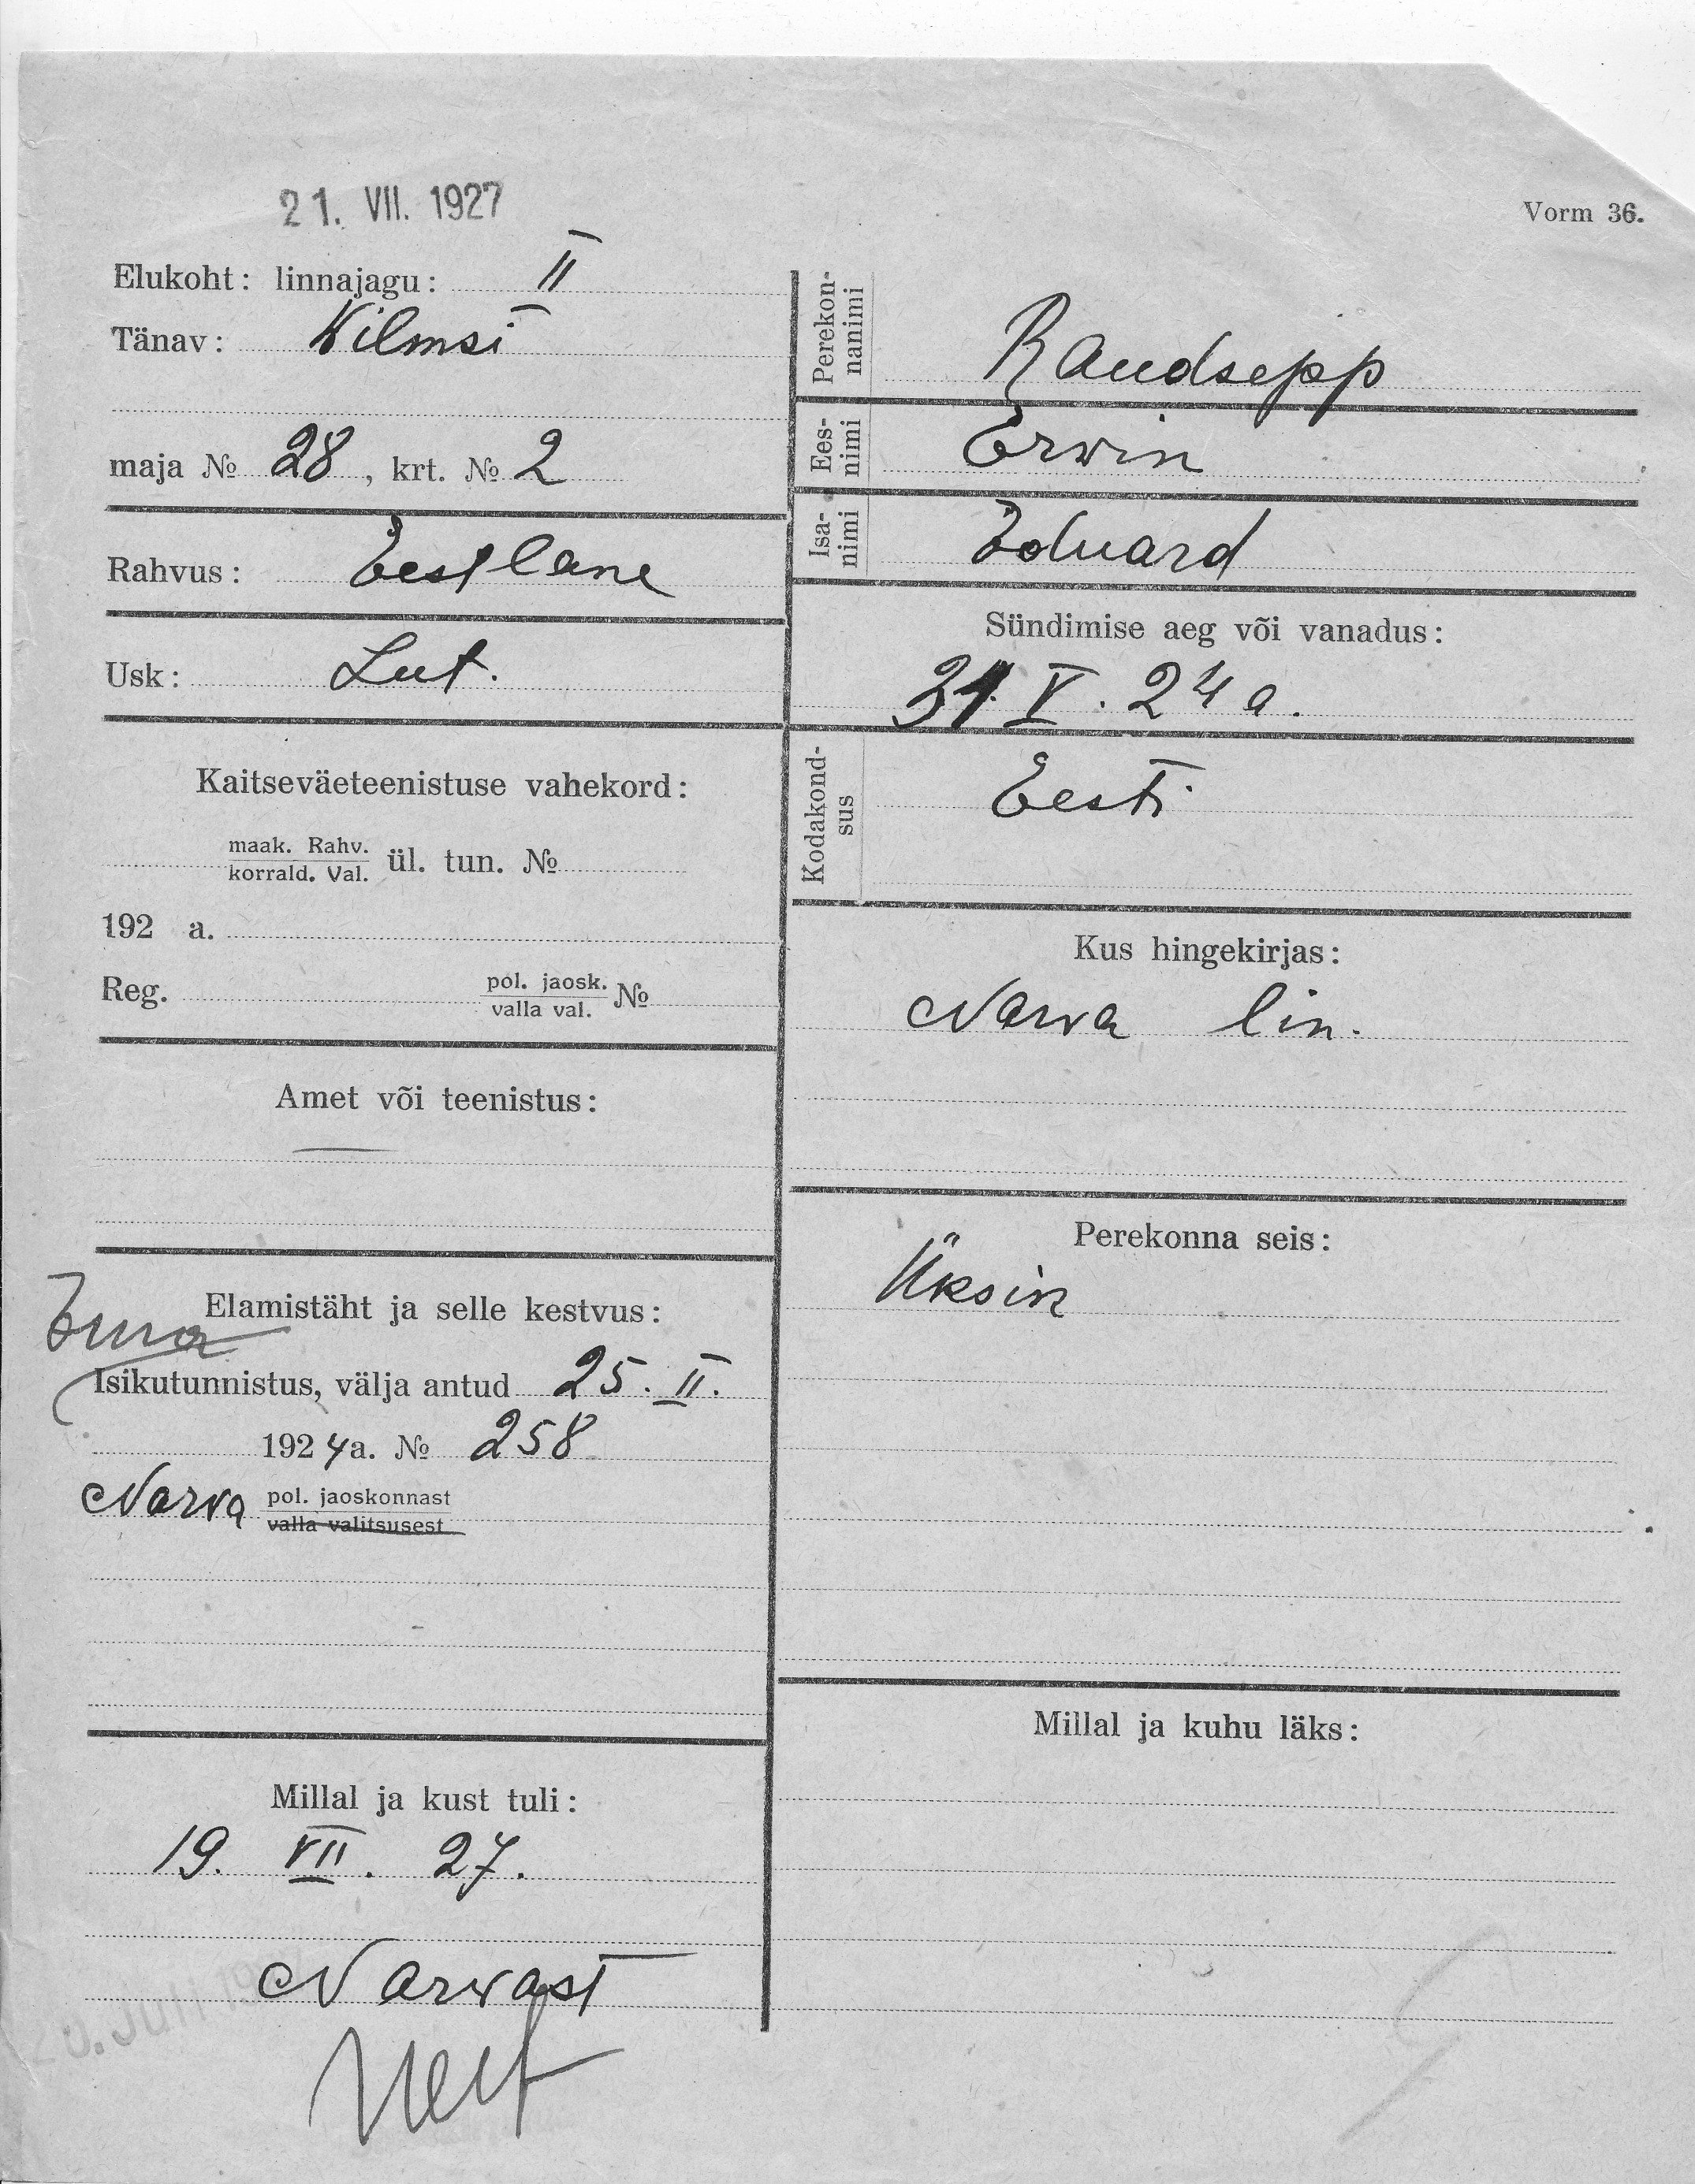 21. VII. 1927
Vorm 36.
Elukoht: linnajagu: II
Tänav: Wilmsi
maja № 28, krt. № 2
Rahvus: Eestlane
Usk: Lut.
Kaitseväeteenistuse vahekord:
maak. Rahv.
korrald. Val. ül. tun. №
192 a.
Reg. pol. jaosk.
valla val. №
Amet või teenistus:
—
Elamistäht ja selle kestvus:
Ema
Isikutunnistus, välja antud 25. II.
1924a. № 258
Narva pol. jaoskonnast
valla valitsusest
Millal ja kust tuli:
19. VII. 27.
Narvast
20. JULI 19
Perekon-
nanimi
Raudsepp
Ees-
nimi
Erwin
Isa-
nimi
Eduard
Sündimise aeg või vanadus:
31. V. 24 a.
Kodakond-
sus
Eesti
Kus hingekirjas:
Narva lin.
Perekonna seis:
Üksin
Millal ja kuhu läks: